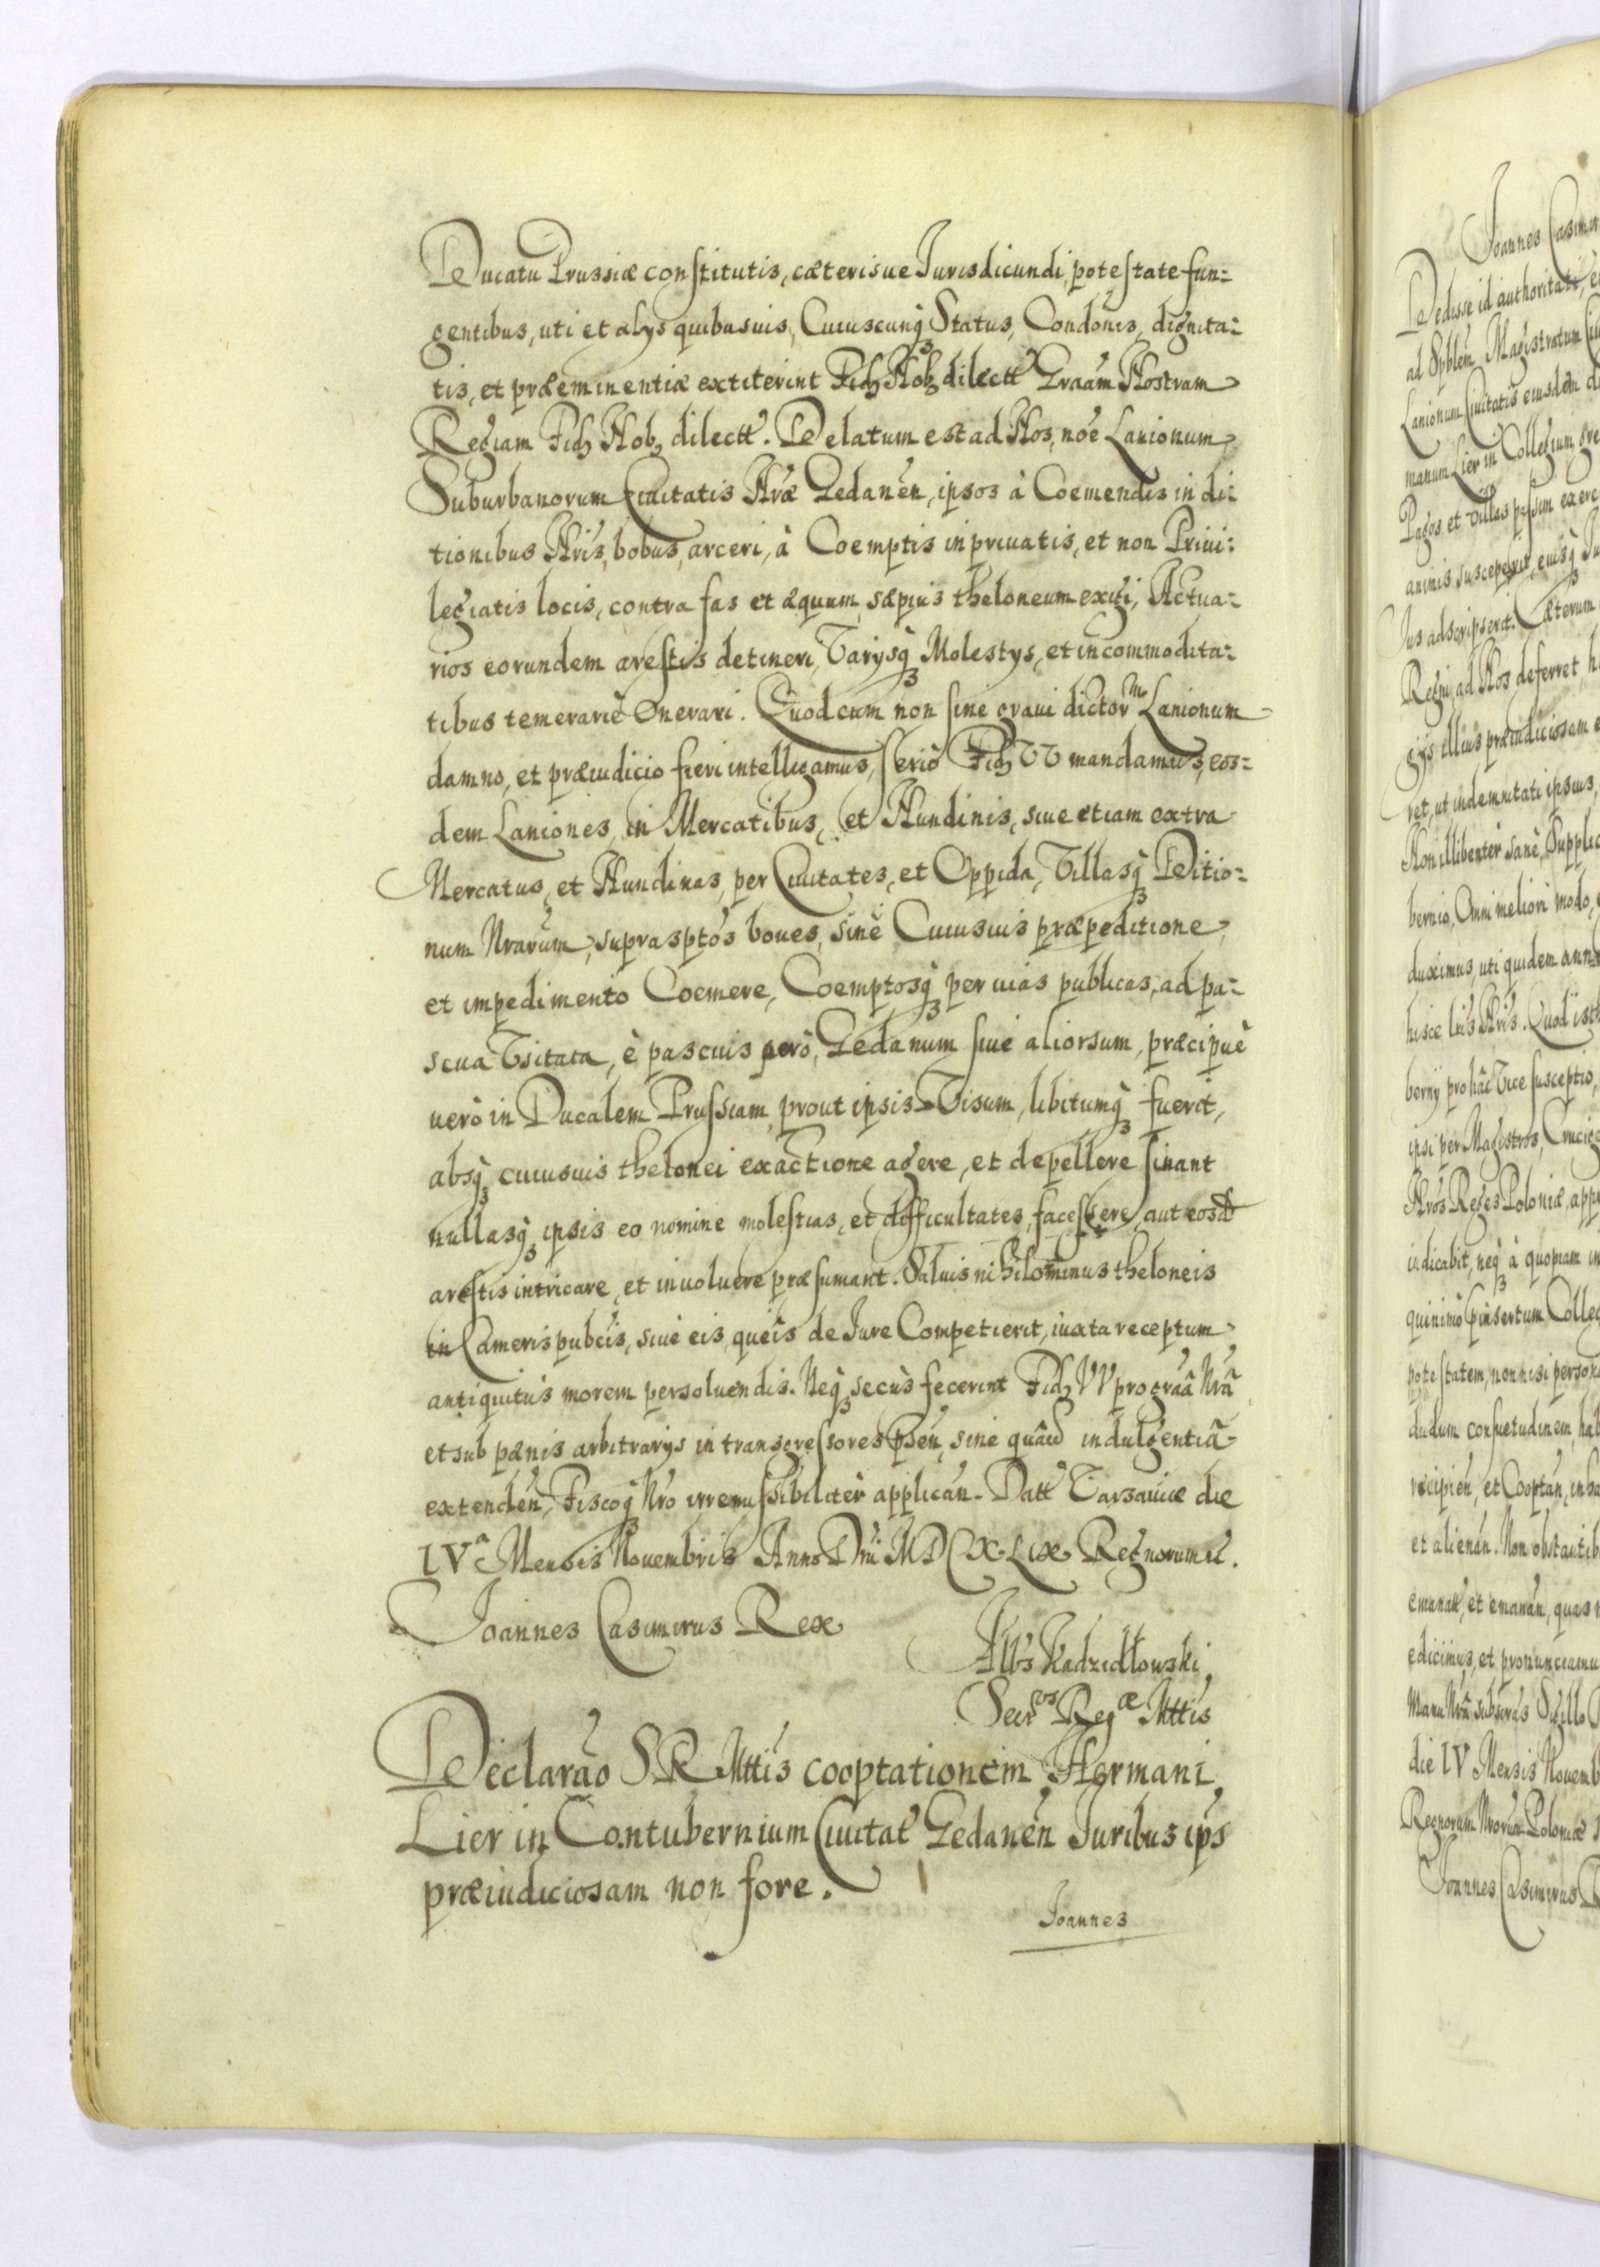 Ducatu Prussiæ constitutis, cæterisue Jurisdicundi, potestate fun=
gentibus, uti et alys quibusuis, Cuiuscunq3 Status, Condonis, dignita=
tis, et præeminentiæ extiterint Fidz Nobz dilectt Graam Nostram
Regiam Fidz Nobz dilectt. Delatum est ad Nos, noe Lanionum
Suburbanorum Ciuitatis Nræ Gedanen, ipsos à Coemendis in di=
tionibus Nris, bobus, arceri, à Coemptis in priuatis, et non Priui=
legiatis locis, contra fas et æquum, sæpius theloneum exigi, Actua=
rios eorundem arestis detineri, Varysq3 Molestys, et incommodita=
tibus temerariè Onerari. Quod cum non sine graui dictorm Lanionum
damno, et præiudicio fieri intelligamus, seriò Fidz VV mandamus, eos=
dem Laniones, in Mercatibus, et Nundinis, siue etiam extra
Mercatus, et Nundinas, per Ciuitates, et Oppida, Villasq3 Ditio=
num Nrarum, suprasptos boues, sine Cuiusuis præpeditione,
et impedimento Coemere, Coemptosq3 per uias publicas, ad pa=
scua Vsitata, è pascuis uerò, Gedanum siue aliorsum, præcipuè
uerò in Ducalem Prussiam, prout ipsis Visum, libitumq3 fuerit,
absq3 cuiusuis thelonei exactione agere, et depellere sinant
nullasq3 ipsis eo nomine molestias, et difficultates, facessere, aut eosd
arestis intricare, et inuoluere præsumant. Saluis nihilominus theloneis
in Cameris pubcis, siue eis, queis de Jure Competierit, iuxta receptum
antiquitus morem persoluendis. Neq3 secùs fecerint Fidz VV pro graâ Nrâ
et sub pænis arbitrarys in transgressores psen, sine quâuis indulgentiâ
extenden, Fiscoq3 Nro irremissibilitèr applican. Datt Varsauiæ die
IVa Mensis Nouembris Anno Dni MDCXLIX. Regnorum
Joannes Casimirus Rex
Albs Kadzidłowski
Secrs Regæ Mttis
Declarao S R Mttis cooptationem Hermani
Lier in Contubernium Ciuitat Gedanen Juribus ips
præiudiciosam non fore.
Joannes
Joannes Casimir
Dedisse id authoritate, e
ad Spblem Magistratum Ciu
Lanionum Ciuitatis eiusdem
manum Lier in Collegium
Pagos et Villas passim exerc
animis susceperit, eiusq3 Ju
Ius adscripserit. Cæterum
Regni, ad Nos deferret, h
gys illius, præiudiciosam e
ret, ut indemnitati ipsius,
Non illibentèr sanè, Supplic
bernio, Omni meliori modo,
duximus, uti quidem ann
hisce lris Nris. Quod isth
berny pro hâc Vice susceptio,
ipsi per Magistros, Crucig
Nros Reges Poloniæ, app
iudicabit, neq3 à quopiam in
quinimò insertum Colleg
potestatem, non nisi person
dudum consuetudinem, hab
recipien, et Cooptan, in ho
et alienan. Non obstantib
emanatt, et emanan, quas n
edicimus, et pronunciamu
Manu Nrâ subscras Sigillo
die IV Mensis Nouemb
Regnorum Nrorum Poloniæ
Joannes Casimirus R